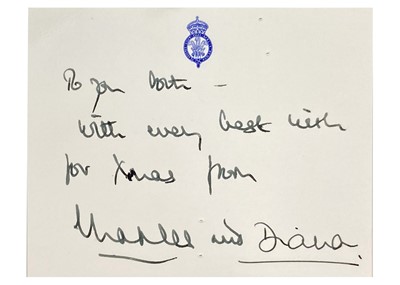 To you both –
With every best wish
for Xmas from
Charles and Diana.